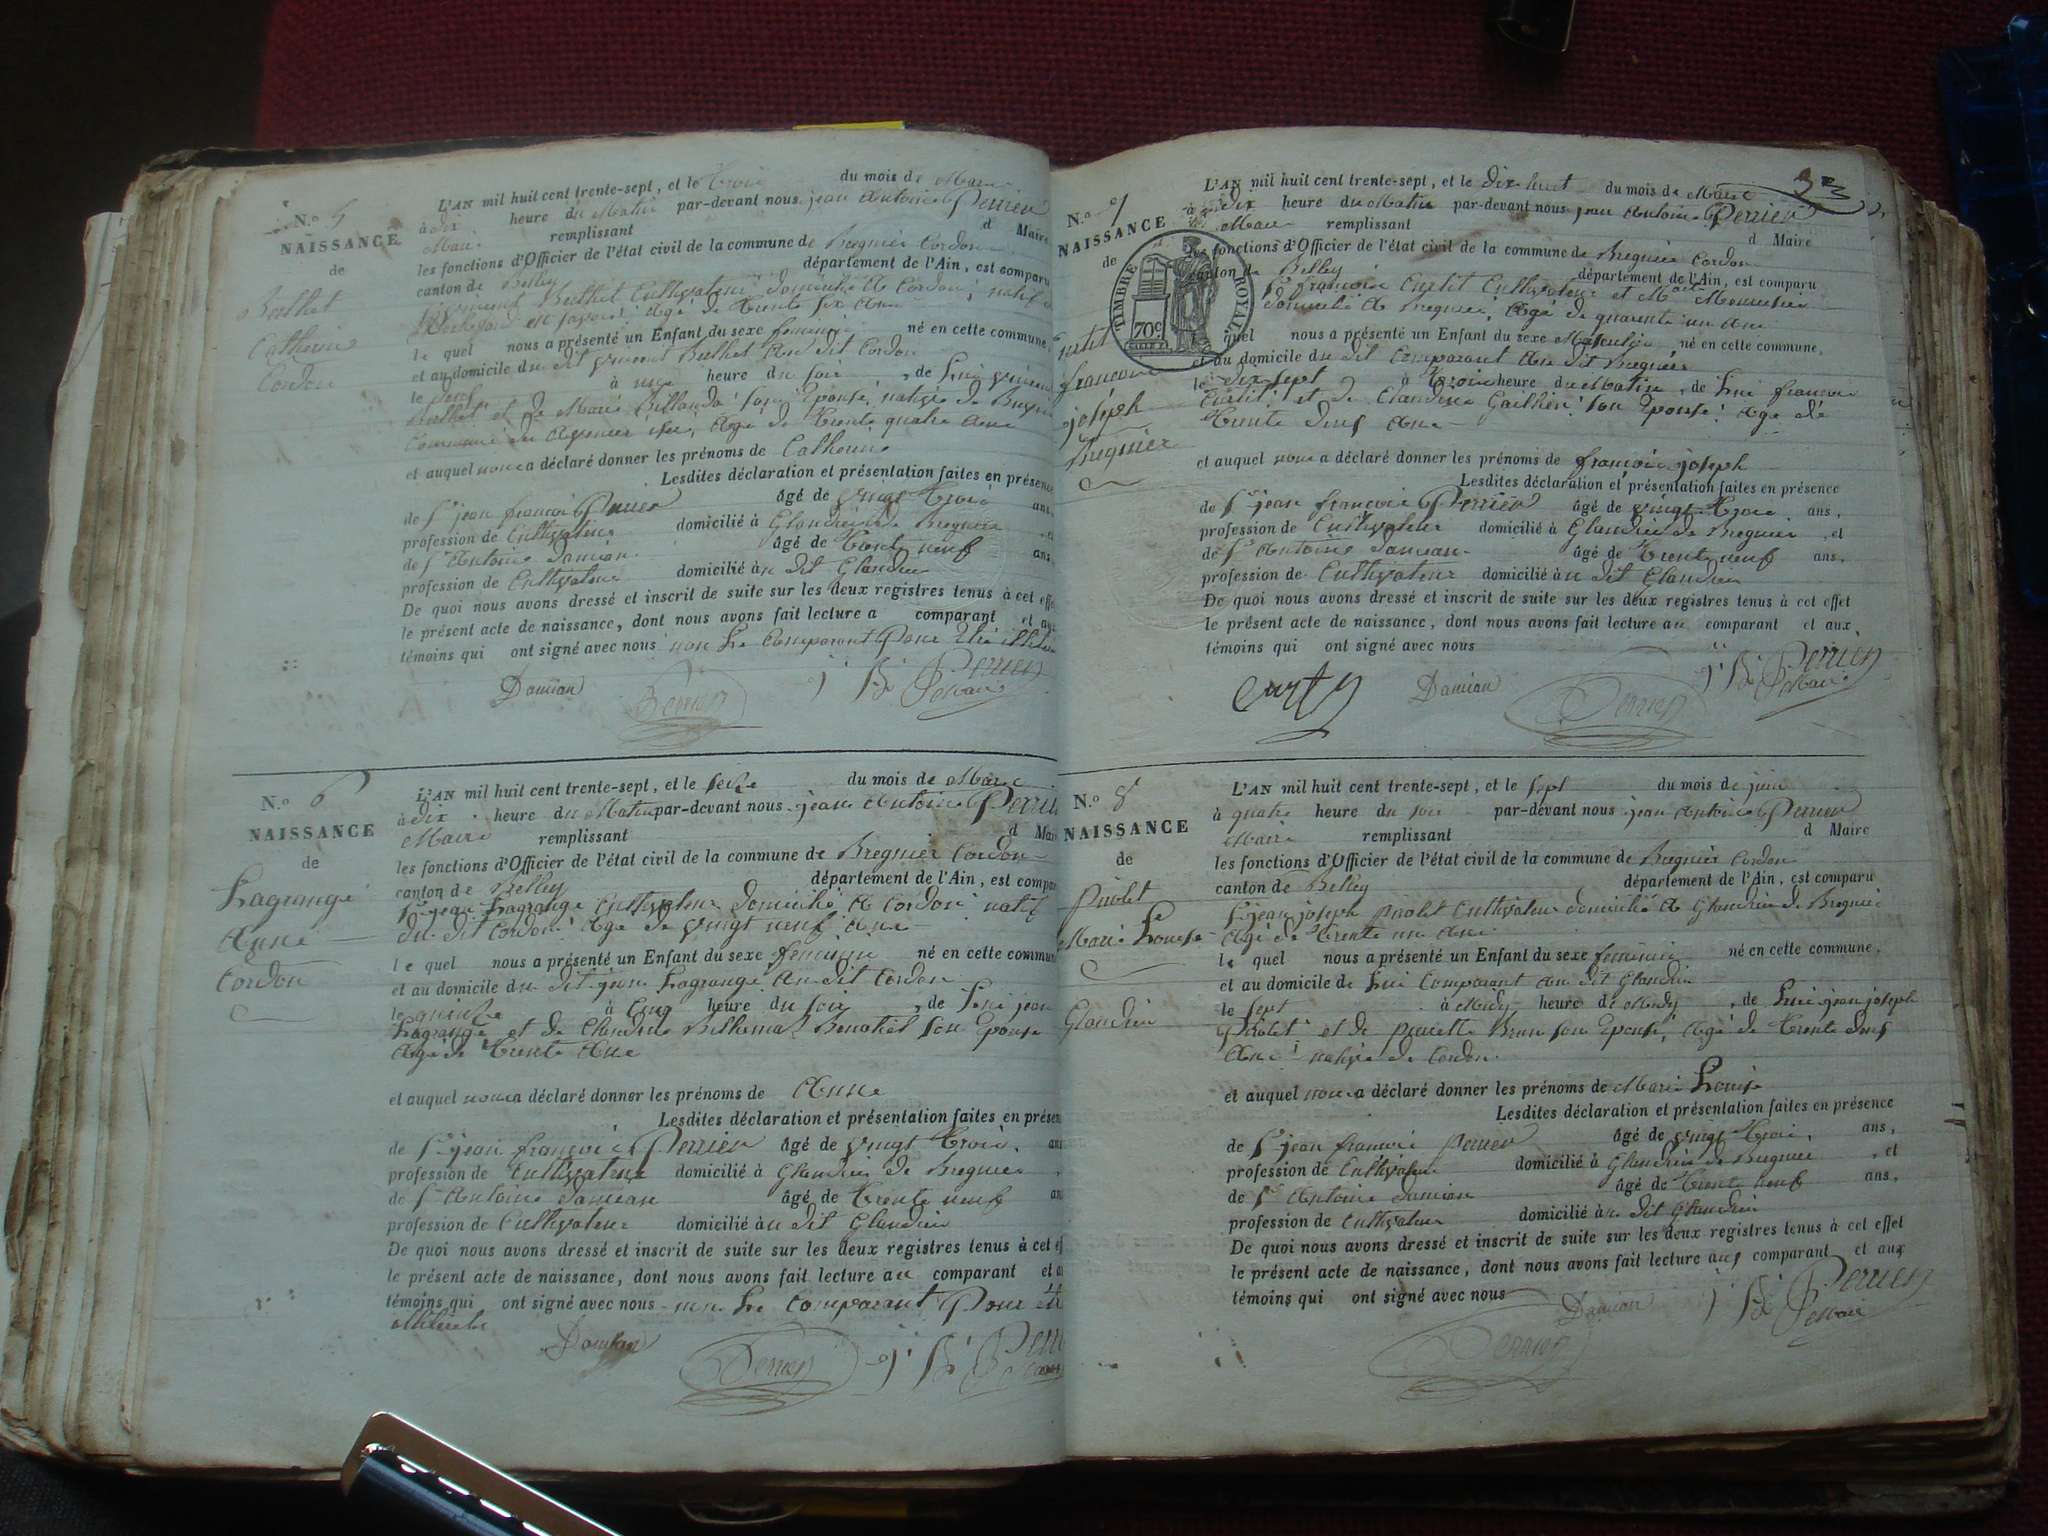 N.º 5
NAISSANCE
de
Buthet
Catherine
Cordon
L'AN mil huit cent trente-sept, et le trois du mois de Mars
à dix heure du Matin par-devant nous jean Antoine Perrier
Maire remplissant d Maire
les fonctions d'Officier de l'état civil de la commune de Bregnier Cordon
canton de Belley département de l'Ain, est comparu
Buthet Cultivateur domicilié à Cordon, natif
âgé de trente six ans
le quel nous a présenté un Enfant du sexe feminin né en cette commune,
et au domicile du dit Vincent Buthet au dit Cordon
le deux à une heure du soir, de lui Vincent
Buthet et de Marie son Epouse, native de
âgé de trente quatre ans
et auquel nous a déclaré donner les prénoms de Catherine
Lesdites déclaration et présentation faites en présence
de Sr jean françois Perrier âgé de vingt trois ans,
profession de Cultivateur domicilié à Glandieu de Bregnier, et
de Sr Antoine Damian âgé de trente neuf ans,
profession de Cultivateur domicilié au dit Glandieu
De quoi nous avons dressé et inscrit de suite sur les deux registres tenus à cet effet
le présent acte de naissance, dont nous avons fait lecture a comparant et aux
témoins qui ont signé avec nous non le comparant pour être illitéré
Damian Perrier j. A. Perrier
Maire
N.º 6
NAISSANCE
de
Lagrange
Anne
Cordon
L'AN mil huit cent trente-sept, et le seize du mois de Mars
à dix heure du Matin par-devant nous jean Antoine Perrier
Maire remplissant d Maire
les fonctions d'Officier de l'état civil de la commune de Bregnier Cordon
canton de Belley département de l'Ain, est comparu
Sr jean Lagrange Cultivateur domicilié à Cordon natif
du dit Cordon âgé de vingt neuf ans
le quel nous a présenté un Enfant du sexe feminin né en cette commune
et au domicile du dit jean Lagrange au dit Cordon
le quinze à cinq heure du soir, de lui jean
Lagrange et de Claudine son Epouse
âgé de trente ans
et auquel nous a déclaré donner les prénoms de Anne
Lesdites déclaration et présentation faites en présence
de Sr jean françois Perrier âgé de vingt trois, ans
profession de Cultivateur domicilié à Glandieu de Bregnier,
de Sr Antoine Damian âgé de trente neuf ans
profession de Cultivateur domicilié au dit Glandieu
De quoi nous avons dressé et inscrit de suite sur les deux registres tenus à cet
le présent acte de naissance, dont nous avons fait lecture au comparant et
témoins qui ont signé avec nous non le comparant pour être
illitéré
Damian Perrier j. A. Perrier
N.º 7
NAISSANCE
de
TIMBRE ROYAL
70c
Curtit
francois
joseph
Bregnier
L'AN mil huit cent trente-sept, et le dix-huit du mois de Mars
à dix heure du Matin par-devant nous jean Antoine Perrier
Maire remplissant d Maire
les fonctions d'Officier de l'état civil de la commune de Bregnier Cordon
canton de Belley département de l'Ain, est comparu
Sr françois Curtit Cultivateur et
domicilié à Bregnier, âgé de quarente un ans
le quel nous a présenté un Enfant du sexe Masculin né en cette commune,
et au domicile du dit comparant au dit Bregnier
le dix sept à trois heure du Matin, de lui françois
Curtit et de Claudine son Epouse âgé de
trente deux ans
et auquel nous a déclaré donner les prénoms de françois joseph
Lesdites déclaration et présentation faites en présence
de Sr jean françois Perrier âgé de vingt-trois ans,
profession de Cultivateur domicilié à Glandieu de Bregnier, et
de Sr Antoine Damian âgé de trente neuf ans,
profession de Cultivateur domicilié au dit Glandieu
De quoi nous avons dressé et inscrit de suite sur les deux registres tenus à cet effet
le présent acte de naissance, dont nous avons fait lecture au comparant et aux
témoins qui ont signé avec nous
Damian Perrier j. A. Perrier
Maire
N.º 8
NAISSANCE
de
Piolet
Marie Louise
Glandieu
L'AN mil huit cent trente-sept, et le sept du mois de juin
à quatre heure du soir par-devant nous jean Antoine Perrier
Maire remplissant d Maire
les fonctions d'Officier de l'état civil de la commune de Bregnier Cordon
canton de Belley département de l'Ain, est comparu
Sr jean joseph Piolet Cultivateur domicilié à Glandieu de Bregnier
âgé de trente un ans
le quel nous a présenté un Enfant du sexe feminin né en cette commune,
et au domicile de lui comparant au dit Glandieu
le sept à Midy heure de Midy, de lui jean joseph
Piolet et de pierrette Brun son Epouse, âgé de trente deux
ans, native de Cordon
et auquel nous a déclaré donner les prénoms de Marie Louise
Lesdites déclaration et présentation faites en présence
de Sr jean françois Perrier âgé de vingt trois, ans,
profession de Cultivateur domicilié à Glandieu de Bregnier, et
de Sr Antoine Damian âgé de trente neuf ans,
profession de Cultivateur domicilié au dit Glandieu
De quoi nous avons dressé et inscrit de suite sur les deux registres tenus à cet effet
le présent acte de naissance, dont nous avons fait lecture aux comparant et aux
témoins qui ont signé avec nous
Damian Perrier j. A. Perrier
Maire